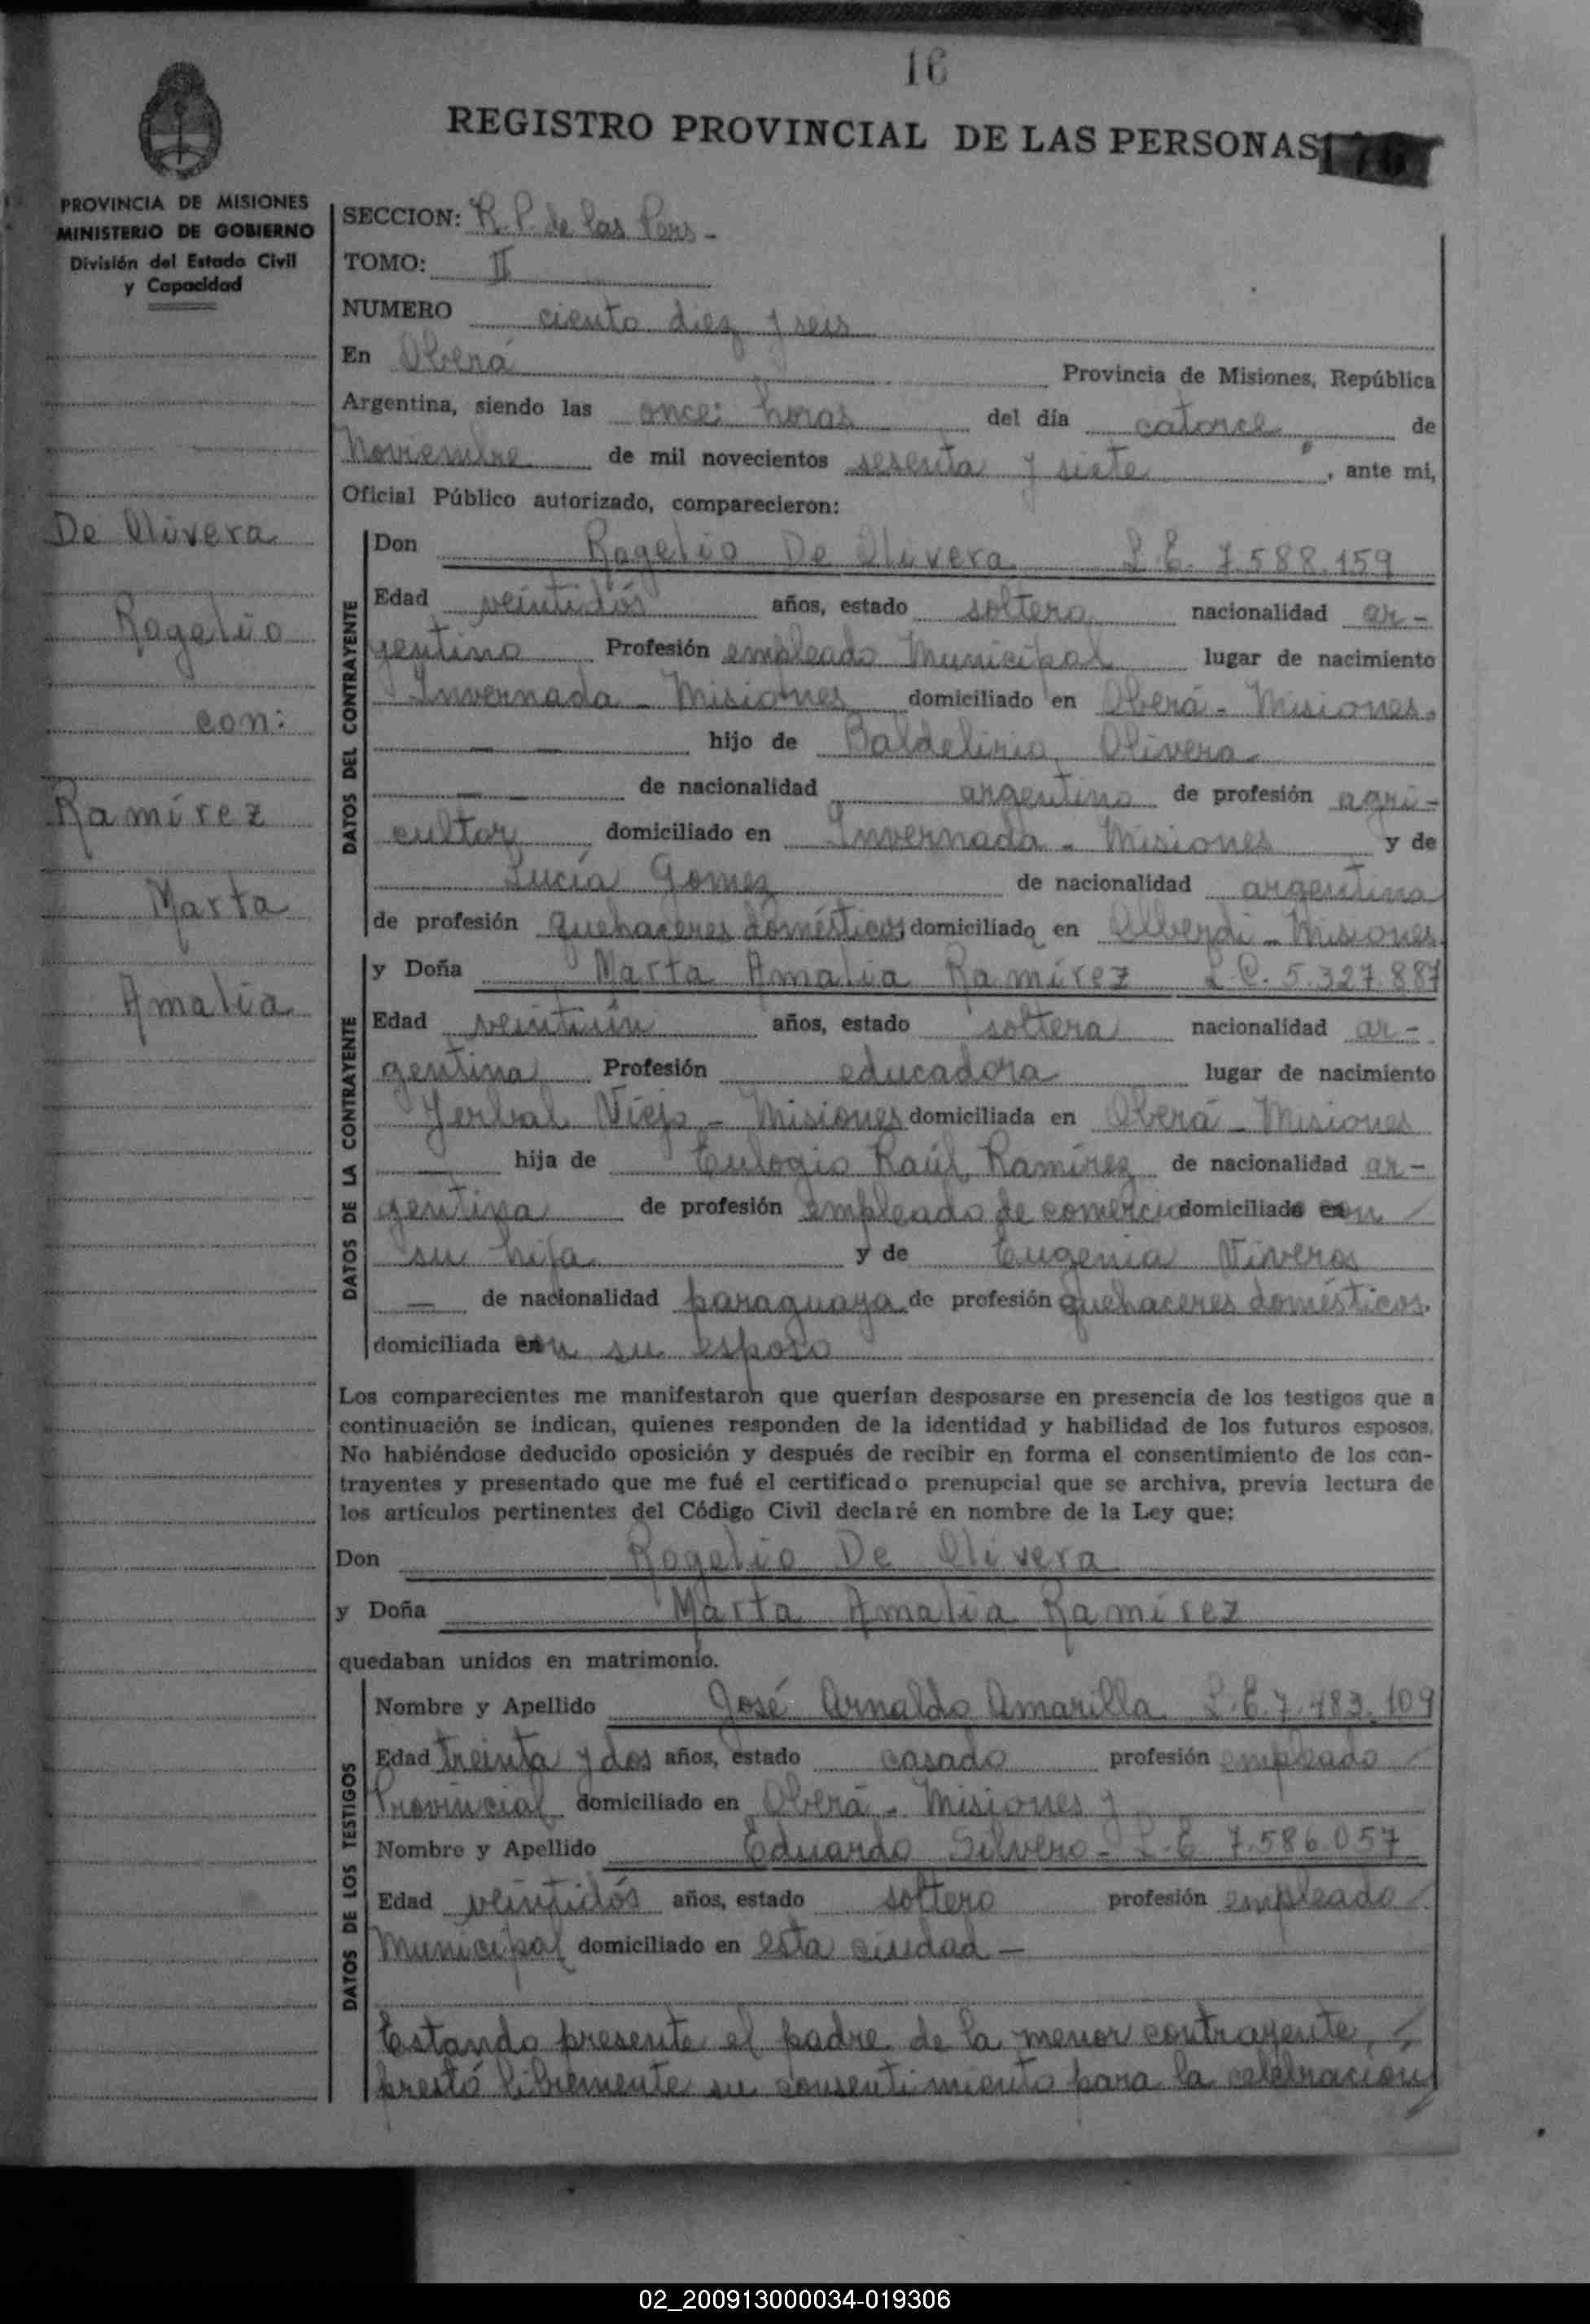 16
REGISTRO PROVINCIAL DE LAS PERSONAS
PROVINCIA DE MISIONES
MINISTERIO DE GOBIERNO
División del Estado Civil
y Capacidad
De Olivera
Rogelio
con:
Ramírez
Marta
Amalia
SECCION: R. P. de las Pers -
TOMO: II
NUMERO ciento diez y seis
En Oberá Provincia de Misiones, República
Argentina, siendo las once horas del día catorce de
Noviembre de mil novecientos sesenta y siete, ante mi,
Oficial Público autorizado, comparecieron:
DATOS DEL CONTRAYENTE
Don Rogelio De Olivera L.E. 7.588.159
Edad veintidós años, estado soltero nacionalidad ar-
gentino Profesión empleado Municipal lugar de nacimiento
Invernada - Misiones domiciliado en Oberá - Misiones.
— — hijo de Baldelirio Olivera
— — de nacionalidad argentino de profesión agri-
cultor domiciliado en Invernada - Misiones y de
Lucía Gomez de nacionalidad argentina
de profesión quehaceres domésticos domiciliado en Alberdi - Misiones
DATOS DE LA CONTRAYENTE
y Doña Marta Amalia Ramírez L.C. 5.327.887
Edad veintiún años, estado soltera nacionalidad ar-
gentina Profesión educadora lugar de nacimiento
Yerbal Viejo - Misiones domiciliada en Oberá - Misiones
— hija de Eulogio Raúl Ramírez de nacionalidad ar-
gentina de profesión empleado de comercio domiciliado con
su hija y de Eugenia Viveros
— de nacionalidad paraguaya de profesión quehaceres domésticos.
domiciliada con su esposo
Los comparecientes me manifestaron que querían desposarse en presencia de los testigos que a
continuación se indican, quienes responden de la identidad y habilidad de los futuros esposos.
No habiéndose deducido oposición y después de recibir en forma el consentimiento de los con-
trayentes y presentado que me fué el certificado prenupcial que se archiva, previa lectura de
los artículos pertinentes del Código Civil declaré en nombre de la Ley que:
Don Rogelio De Olivera
y Doña Marta Amalia Ramírez
quedaban unidos en matrimonio.
DATOS DE LOS TESTIGOS
Nombre y Apellido José Arnaldo Amarilla L.E. 7.483.109
Edad treinta y dos años, estado casado profesión empleado
Provincial domiciliado en Oberá - Misiones y
Nombre y Apellido Eduardo Silvero - L.E 7.586.057
Edad veintidós años, estado soltero profesión empleado
Municipal domiciliado en esta ciudad —
Estando presente el padre de la menor contrayente,
prestó libremente su consentimiento para la celebración
02_200913000034-019306